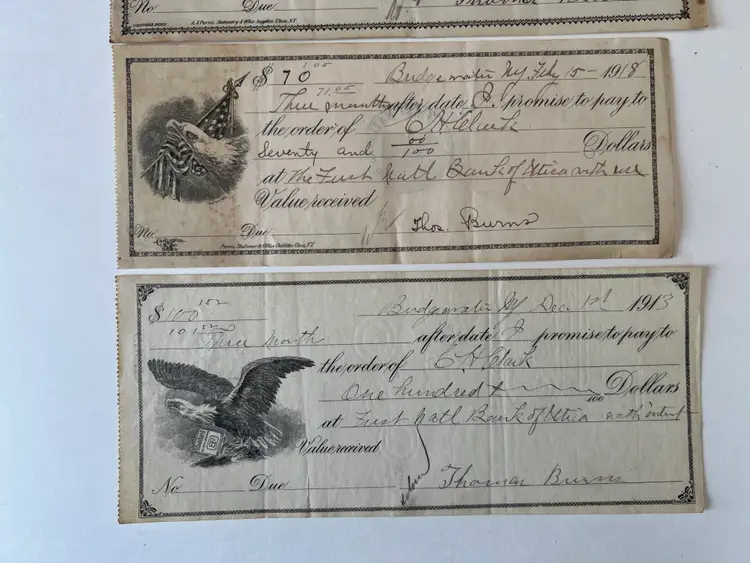 No. Due
A. J. Purvis, Stationery & Office Supplies, Utica, N.Y.
1 05
$ 70 Bridgewater NY, Feby 15 - 1918
71.05
Three months after date I promise to pay to
the order of C H Clark
Seventy and 00/100 Dollars
at The First Natl Bank of Utica with use
Value received
No. Due Thos. Burns
Purvis, Stationer & Office Outfitter, Utica, N.Y.
1 52
$100 Bridgewater NY Dec. 1st 1913
101 52
Three Month after date I promise to pay to
the order of C H Clark
One hundred + /100 Dollars
at First Natl Bank of Utica with
Value received
No Due Thomas Burns